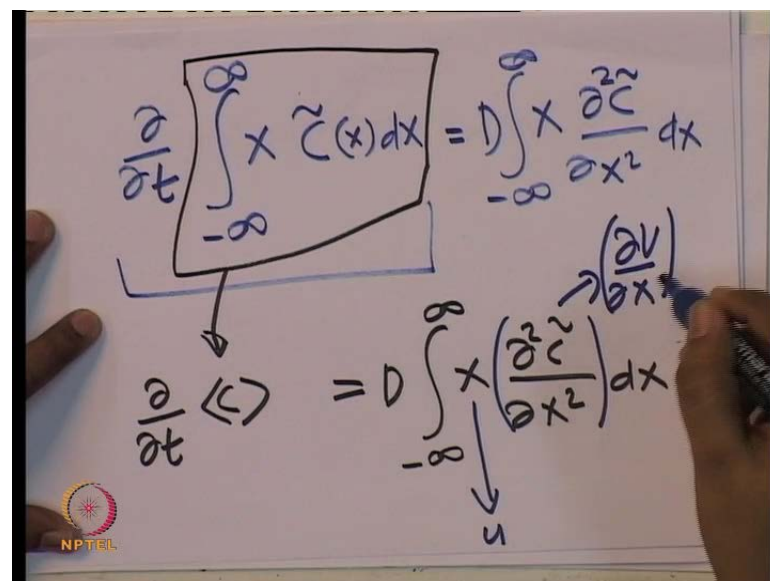 ∂/∂t ∫_{-∞}^{∞} x C̃(x) dx = D ∫_{-∞}^{∞} x ∂²C̃/∂x² dx
(∂V/∂x)
∂/∂t <C> = D ∫_{-∞}^{∞} x (∂²C̃/∂x²) dx
u
NPTEL